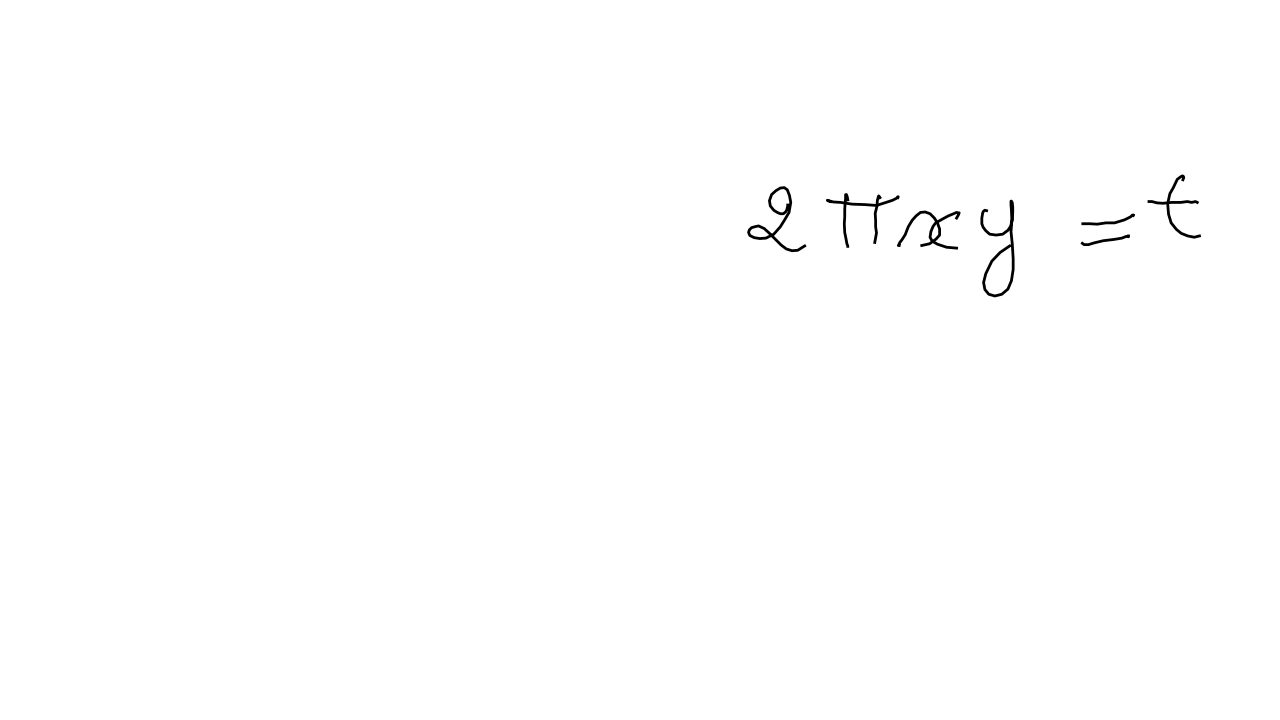 2πxy = t